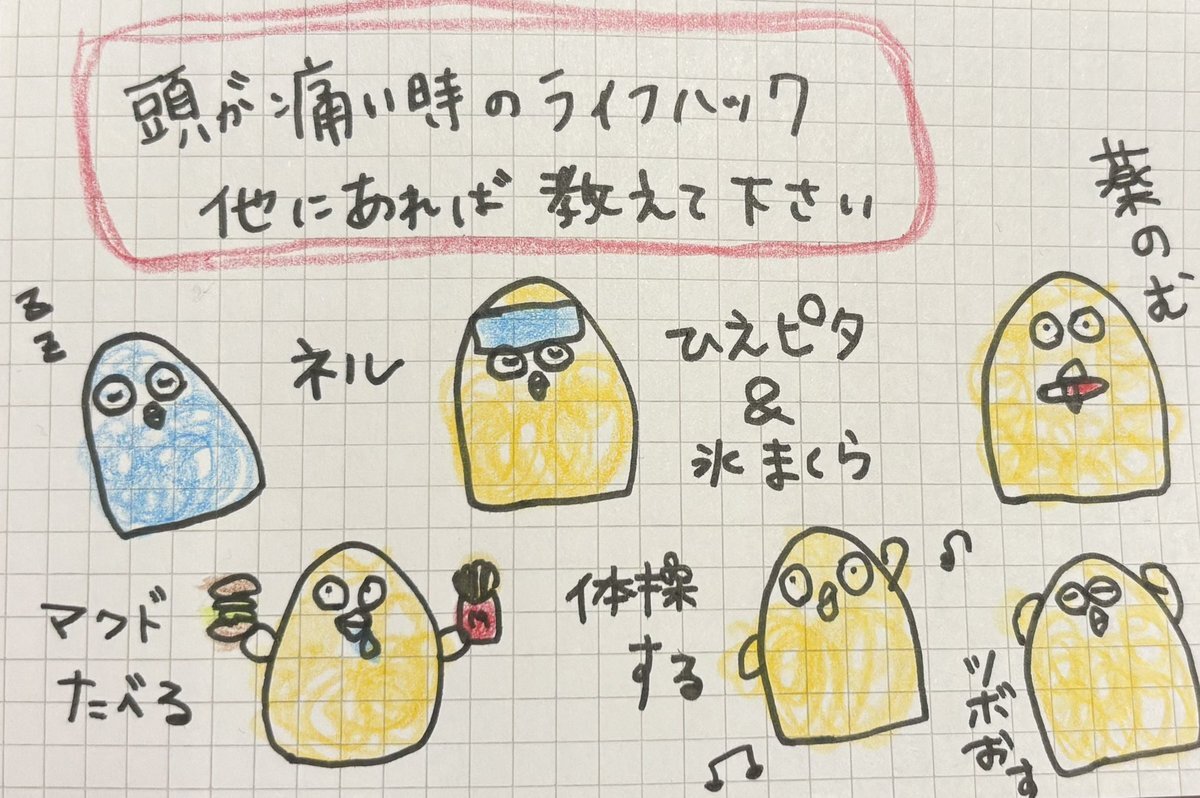 頭が痛い時のライフハック
他にあれば教えて下さい
薬のむ
z
z
ネル
ひえピタ
&
氷まくら
マクド
たべる
M
体操
する
ツボおす